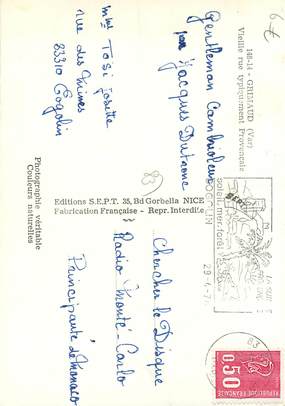 146-14 - GRIMAUD (Var)
Vieille rue typiquement Provençale
Gentleman Cambrioleur
par Jacques Dutronc
Mme TOSI Josette
rue des Mimosas
83310 Cogolin
6 €
83
Editions S.E.P.T. 35, Bd Gorbella NICE
Fabrication Française - Repr. Interdite
Photographie véritable
Couleurs naturelles
COGOLIN
soleil, mer, forêt
29-4-76
83
Chercher le Disque
Radio Monté-Carlo
Principauté de Monaco
0,50
REPUBLIQUE FRANÇAISE